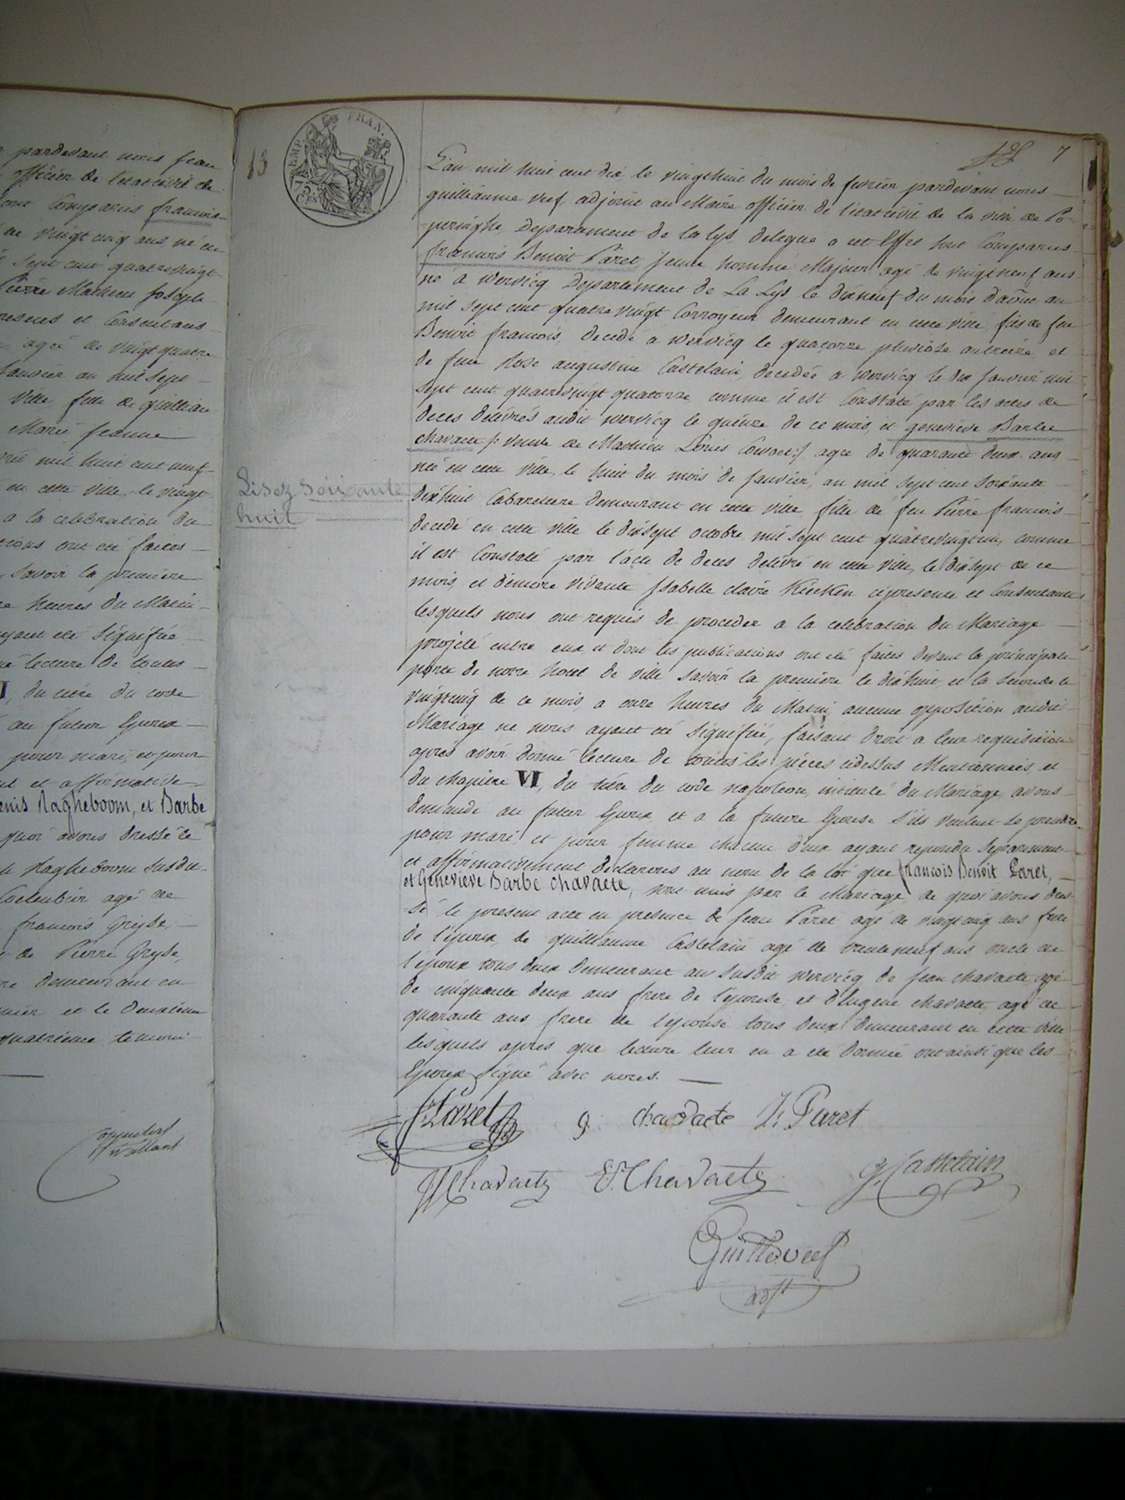 pardevant nous jean
officier de l'etat civil de
sont Comparus francois
de vingt cinq ans né en
sept cent quatrevingt
Pierre Mathieu Joseph
presens et Consentans
agée de vingt quatre
Janvier au mil sept
ville fille de guilliau
Marie jeanne
mil huit cent neuf
en cette ville le vingt
a la celebration du
ont été faites
savoir la premiere
heures du Matin
ayant été Signifiée
lecture de toutes
VI, du titre du code
au futur Epoux
pour mari et pour
et affirmativem
Denis Nagheboom, et Barbe
quoi avons dressé le
Nagheboom susdit
Coeleubier agé de
francois Gryde,
de Pierre Gryde,
demeurant en
et le deuxieme
quatrieme temoin
13
EMP. FRAN.
7
L'an mil huit cent dix le vingthuit du mois de fevrier pardevant nous
guilliaume Veef adjoint au Maire officier de l'etat civil de la ville de Po-
peringhe Departement de la Lys delegué a cet Effet sont Comparus
francois Benoit Paret jeune homme Majeur agé de vingt neuf ans
né à Wervicq Departement de La Lys le dixneuf du mois d'aôut au
mil sept cent quatre vingt Corroyeur demeurant en cette ville fils de feu
Benoit francois, decedé a Wervicq le quatorze pluviose an treize et
de feue Rose augustine Castelain decedée a Wervicq le dix Janvier mil
sept cent quatrevingt quatorze comme il est Constaté par les actes de
deces delivrés audit Wervicq le quinze de ce mois, et genevieve Barbe
chavaete /: veuve de Mathieu Louis :/ agée de quarante deux ans
née en cette ville, le huit du mois de Janvier, au mil sept cent soixante
Lisez soixante
huit
dixhuit Cabaretiere demeurant en cette ville fille de feu Pierre francois
decedé en cette ville le dixsept octobre mil sept cent quatrevingt un, comme
il est Constaté par l'acte de deces delivré en cette ville, le dixsept de ce
mois, et d'encore vivante Isabelle claire Kiecken cipresente et Consentante
lesquels nous ont requis de proceder a la celebration du Mariage
projeté entre eux et dont les publications ont été faites devant la principale
porte de notre hotel de ville savoir la premiere le dixhuit et la seconde le
vingtcinq de ce mois a onze heures du Matin, aucune opposition audit
Mariage ne nous ayant été Signifiée, faisant droit a leur requisition
apres avoir donné lecture de toutes les pieces cidessus Mentionnées, et
du chapitre VI, du titre du code napoleon, intitulé du Mariage, avons
demandé au futur Epoux et a la future Epouse s'ils veulent se prendre
pour mari et pour femme chacun d'eux ayant repondu separement
et affirmativement declarons au nom de la loi que francois Benoit Paret,
et Genevieve Barbe chavaete, sont unis par le mariage, de quoi avons dres-
sé le present acte en presence de jean Paret agé de vingtcinq ans frere
de l'epoux, de guilliaume Castelain agé de trenteneuf ans oncle de
l'epoux tous deux demeurant au susdit Wervicq de jean chavaete agé
de cinquante deux ans frere de l'epouse, et d'Eugene chavaete, agé de
quarante ans frere de l'epouse tous deux demeurant en cette ville
lesquels apres que lecture leur en a été donnée ont ainsi que les
Epoux signé avec nous.
f Paret g chavaete J. Paret
JJ Chavaete E. Chavaete g. Castelain
Guill Veef
adjt